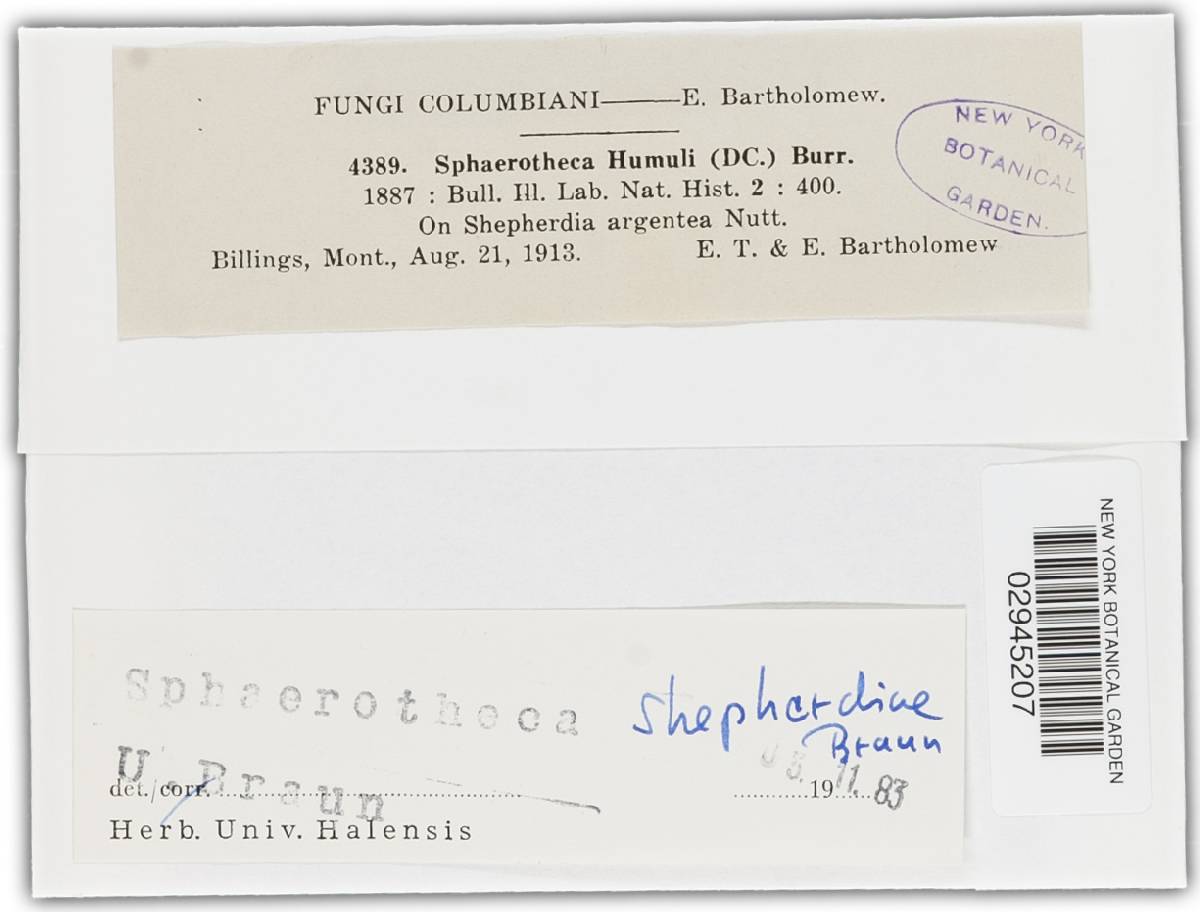 FUNGI COLUMBIANI——E. Bartholomew.
4389. Sphaerotheca Humuli (DC.) Burr.
1887 : Bull. Ill. Lab. Nat. Hist. 2 : 400.
On Shepherdia argentea Nutt.
Billings, Mont., Aug. 21, 1913. E. T. & E. Bartholomew
NEW YORK
BOTANICAL
GARDEN.
NEW YORK BOTANICAL GARDEN
02945207
Sphaerotheca shepherdiae
Braun
U. Braun
det./corr. 19 11. 83
Herb. Univ. Halensis